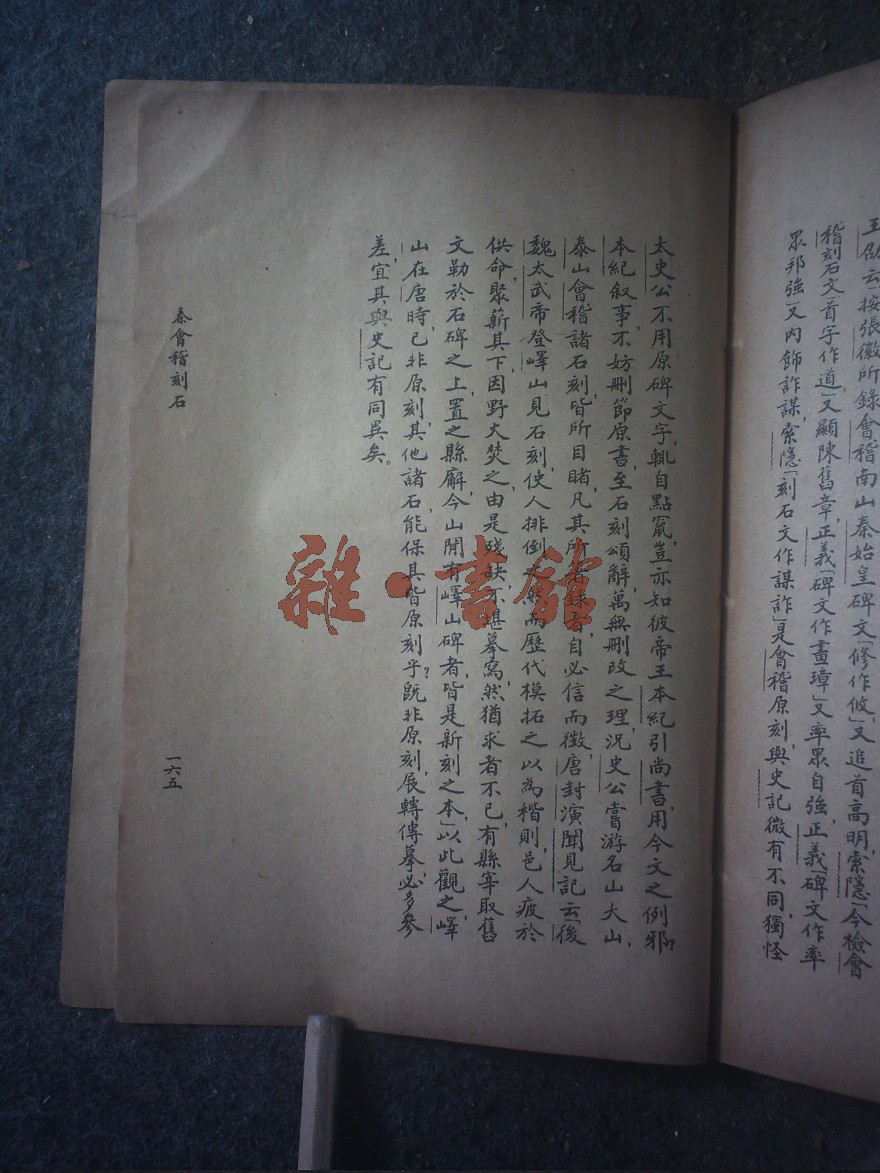 王劭云「按張徽所錄會稽南山秦始皇碑文「修作攸」又追首高明,索隱「今檢會
稽刻石文「首字作道」又顯陳舊章,正義「碑文作畫璋」又率眾自強,正義「碑文作率
眾邦強」又內飾詐謀,索隱「刻石文作謀詐」是會稽原刻與史記微有不同,獨怪
太史公不用原碑文字,輒自點竄,豈亦知彼帝王本紀引尚書,用今文之例邪?
本紀叙事不妨刪節原書,至石刻頌辭萬無刪改之理,況史公嘗游名山大山,
泰山會稽諸石刻皆所目睹,凡其所著錄者自必信而徵,唐封演聞見記云「後
魏太武帝登嶧山見石刻,使人排倒 然而歷代模拓之以為楷則,邑人疲於
供命,聚薪其下,因野火焚之,由是殘缺不堪摹寫,然猶求者不已,有縣宰取舊
文勒於石碑之上,置之縣廨,今山閒有嶧山碑者皆是新刻之本」以此觀之,嶧
山在唐時已非原刻,其他諸石能保其皆原刻乎?既非原刻,展轉傳摹必多參
差,宜其與史記有同異矣。
秦會稽刻石
一六五
雜·書館